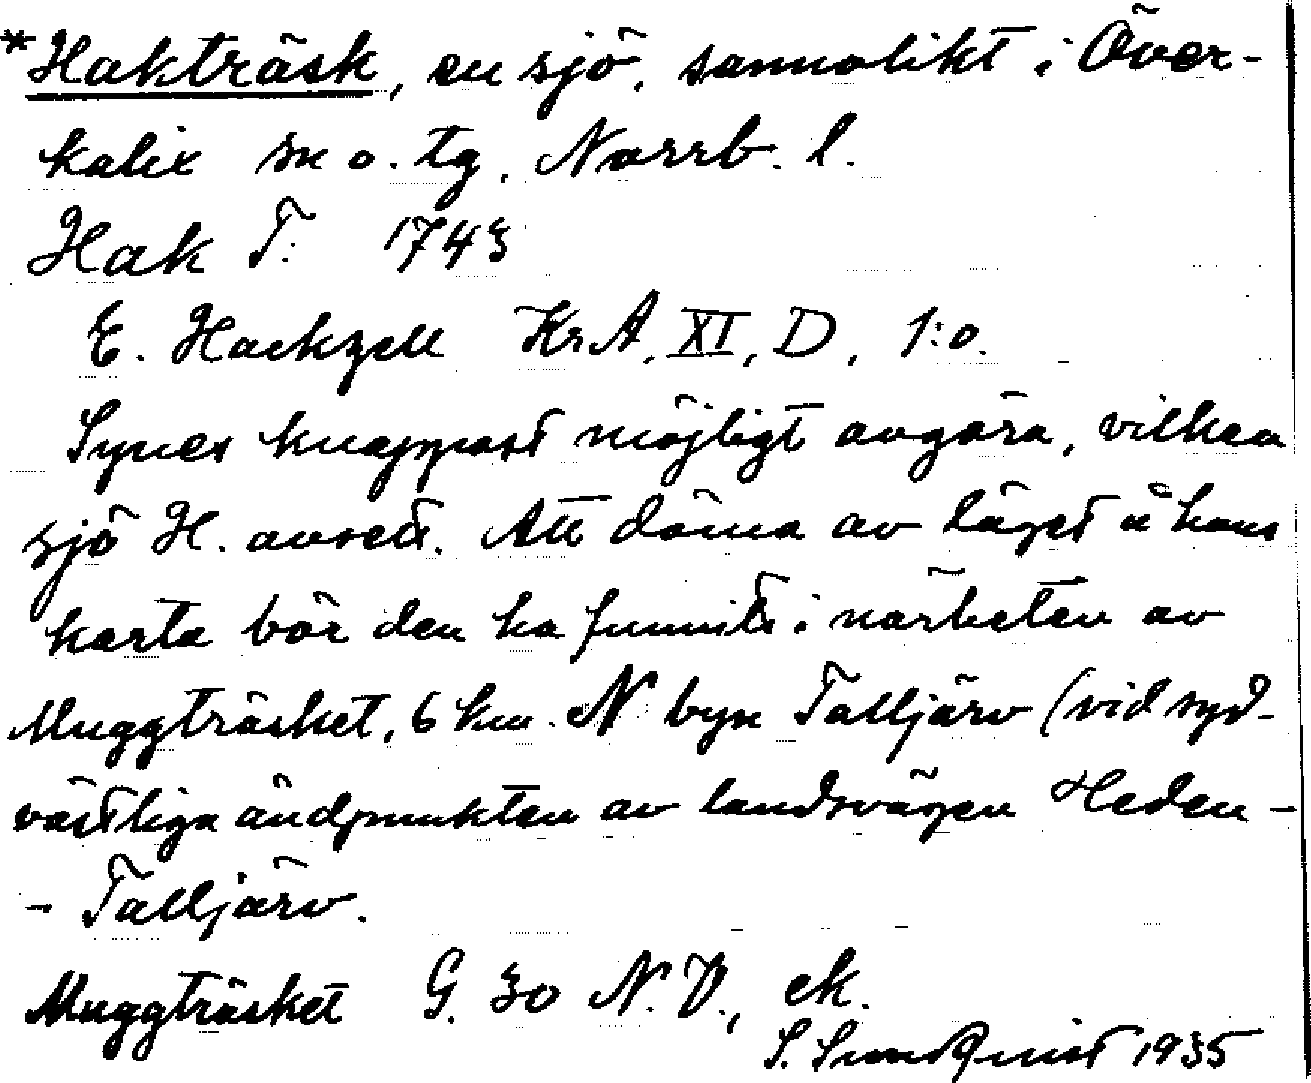 *Hakträsk, en sjö, sannolikt i Över-
kalix sn o. tg. Norrb. l.
Hak T: 1743
E. Hackzell KrA, XI, D, 1:o.
Synes knappast möjligt avgöra, vilken
sjö H. avsett. Att döma av läget å hans
karta bör den ha funnits i närheten av
Muggträsket, 6 km. N byn Talljärv (vid syd-
västliga ändpunkten av landsvägen Heden-
- Talljärv.
Muggträsket G. 30 N.V., ek.
S. Sundquist 1935